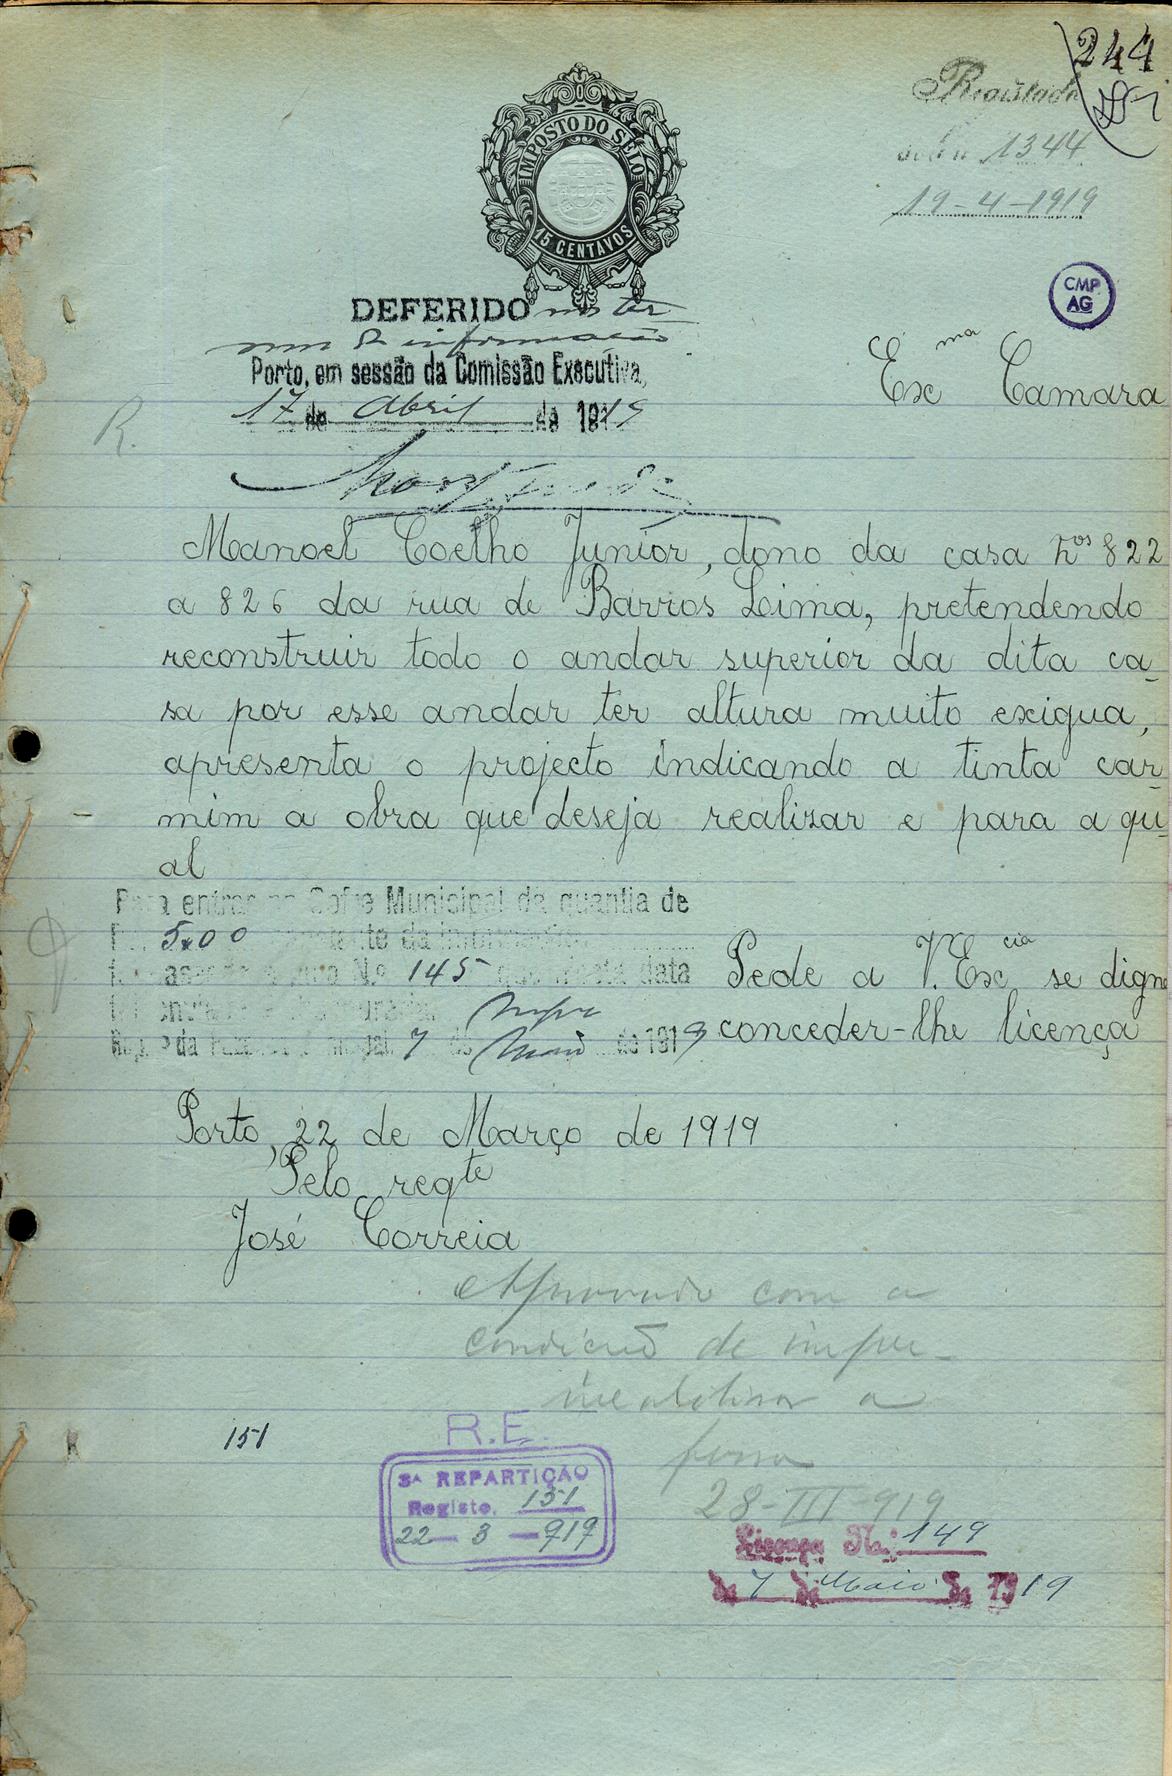 244
Registado
sob n 1344
19-4-1919
IMPOSTO DO SELO
15 CENTAVOS
CMP
AG
DEFERIDO nos ter
mos da informação
Porto, em sessão da Comissão Executiva,
17 de Abril de 1919
Exma Camara
R.
Manoel Coelho Junior, dono da casa nos 822
a 826 da rua de Barros Lima, pretendendo
reconstruir todo o andar superior da dita ca-
sa por esse andar ter altura muito exigua,
apresenta o projecto indicando a tinta car-
mim a obra que deseja realizar e para a qu-
al
Para entrar no Cofre Municipal da quantia de
5$00 constante da informação
guia N.º 145 que nesta data
7 de Maio de 1919
Pede a V. Excia se digne
conceder-lhe licença
Porto, 22 de Março de 1919
Pelo reqte
José Correia
Aprovado com a
condição de imper-
meabilisar a
fossa
28-III-919
151
R.E.
3ª REPARTIÇÃO
Registo, 151
22-3-919
Licença N.º 149
de 7 de Maio de 1919